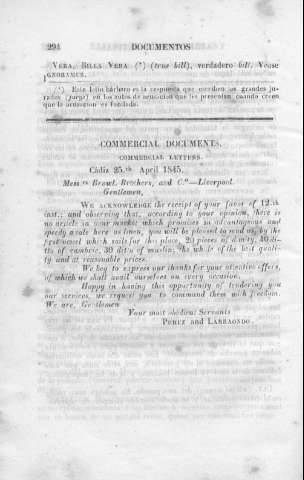 294 DOCUMENTOS
VERA, BILLA VERA (*) (true bill), verdadero bill. Vease
IGNORAMUS.
(*) Este latin bárbaro es la respuesta que escriben los grandes ju-
rados (jurys) en los autos de acusacion que les presentan, cuando creen
que la acusacion es fundada.
COMMERCIAL DOCUMENTS.
COMMERCIAL LETTERS.
Cádiz 25.th April 1845.
Mess.rs Brawl, Brothers, and C.º—Liverpool.
Gentlemen,
WE ACKNOWLEDGE the receipt of your favor of 12.th
inst.; and observing that, according to your opinion, there is
no article in your market which promises so advantageous and
speedy a sale here as linen, you will be pleased to send us, by the
first vessel which sails for this place, 20 pieces of dimity, 40 di-
tto of cambric, 30 ditto of muslin; the whole of the best quali-
ty and at reasonable prices.
We beg to express our thanks for your attentive offers,
of which we shall avail ourselves on every occasion.
Happy in having this opportunity of tendering you
our services, we request you to command them with freedom.
We are, Gentlemen
Your most obedient Servants
PEREZ and LARRAONDO.